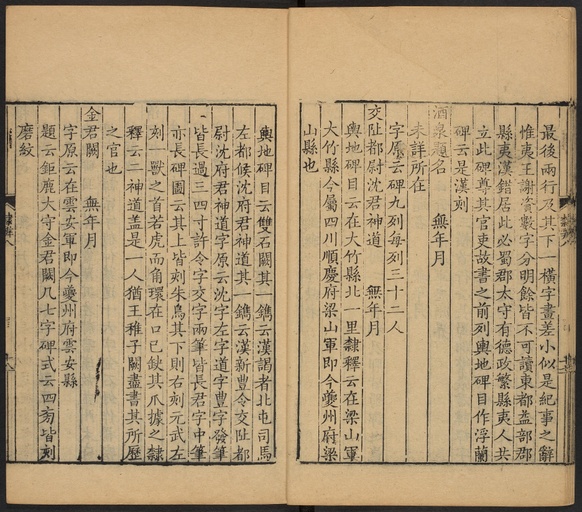 最後兩行及其下一橫字畫差小似是紀事之辭
惟夷王謝資數字分明餘皆不可讀東都益部郡
縣夷漢錯居此必蜀郡太守有德政繁縣夷人共
立此碑尊其官吏故書之前列輿地碑目作浮蘭
碑云是漢刻
酒泉題名　無年月
未詳所在
字原云碑九列每列三十二人
交阯都尉沈君神道　無年月
輿地碑目云在大竹縣北一里隸釋云在梁山軍
大竹縣今屬四川順慶府梁山軍即今夔州府梁
山縣也
輿地碑目云雙石闕其一鐫云漢謁者北屯司馬
左都候沈府君神道其一鐫云漢新豐令交阯都
尉沈府君神道字原云沈字左字道字豐字發筆
皆長過三四寸許令字交字兩筆皆長君字中筆
亦長碑圖云其上皆刻朱鳥其下則右刻元武左
刻一獸之首若虎而角環在口已缺其爪據之隸
釋云二神道盖是一人猶王稚子闕盡書其所歷
之官也
金君闕　無年月
字原云在雲安軍即今夔州府雲安縣
題云鉅鹿大守金君闕凡七字碑式云四旁皆刻
磨紋